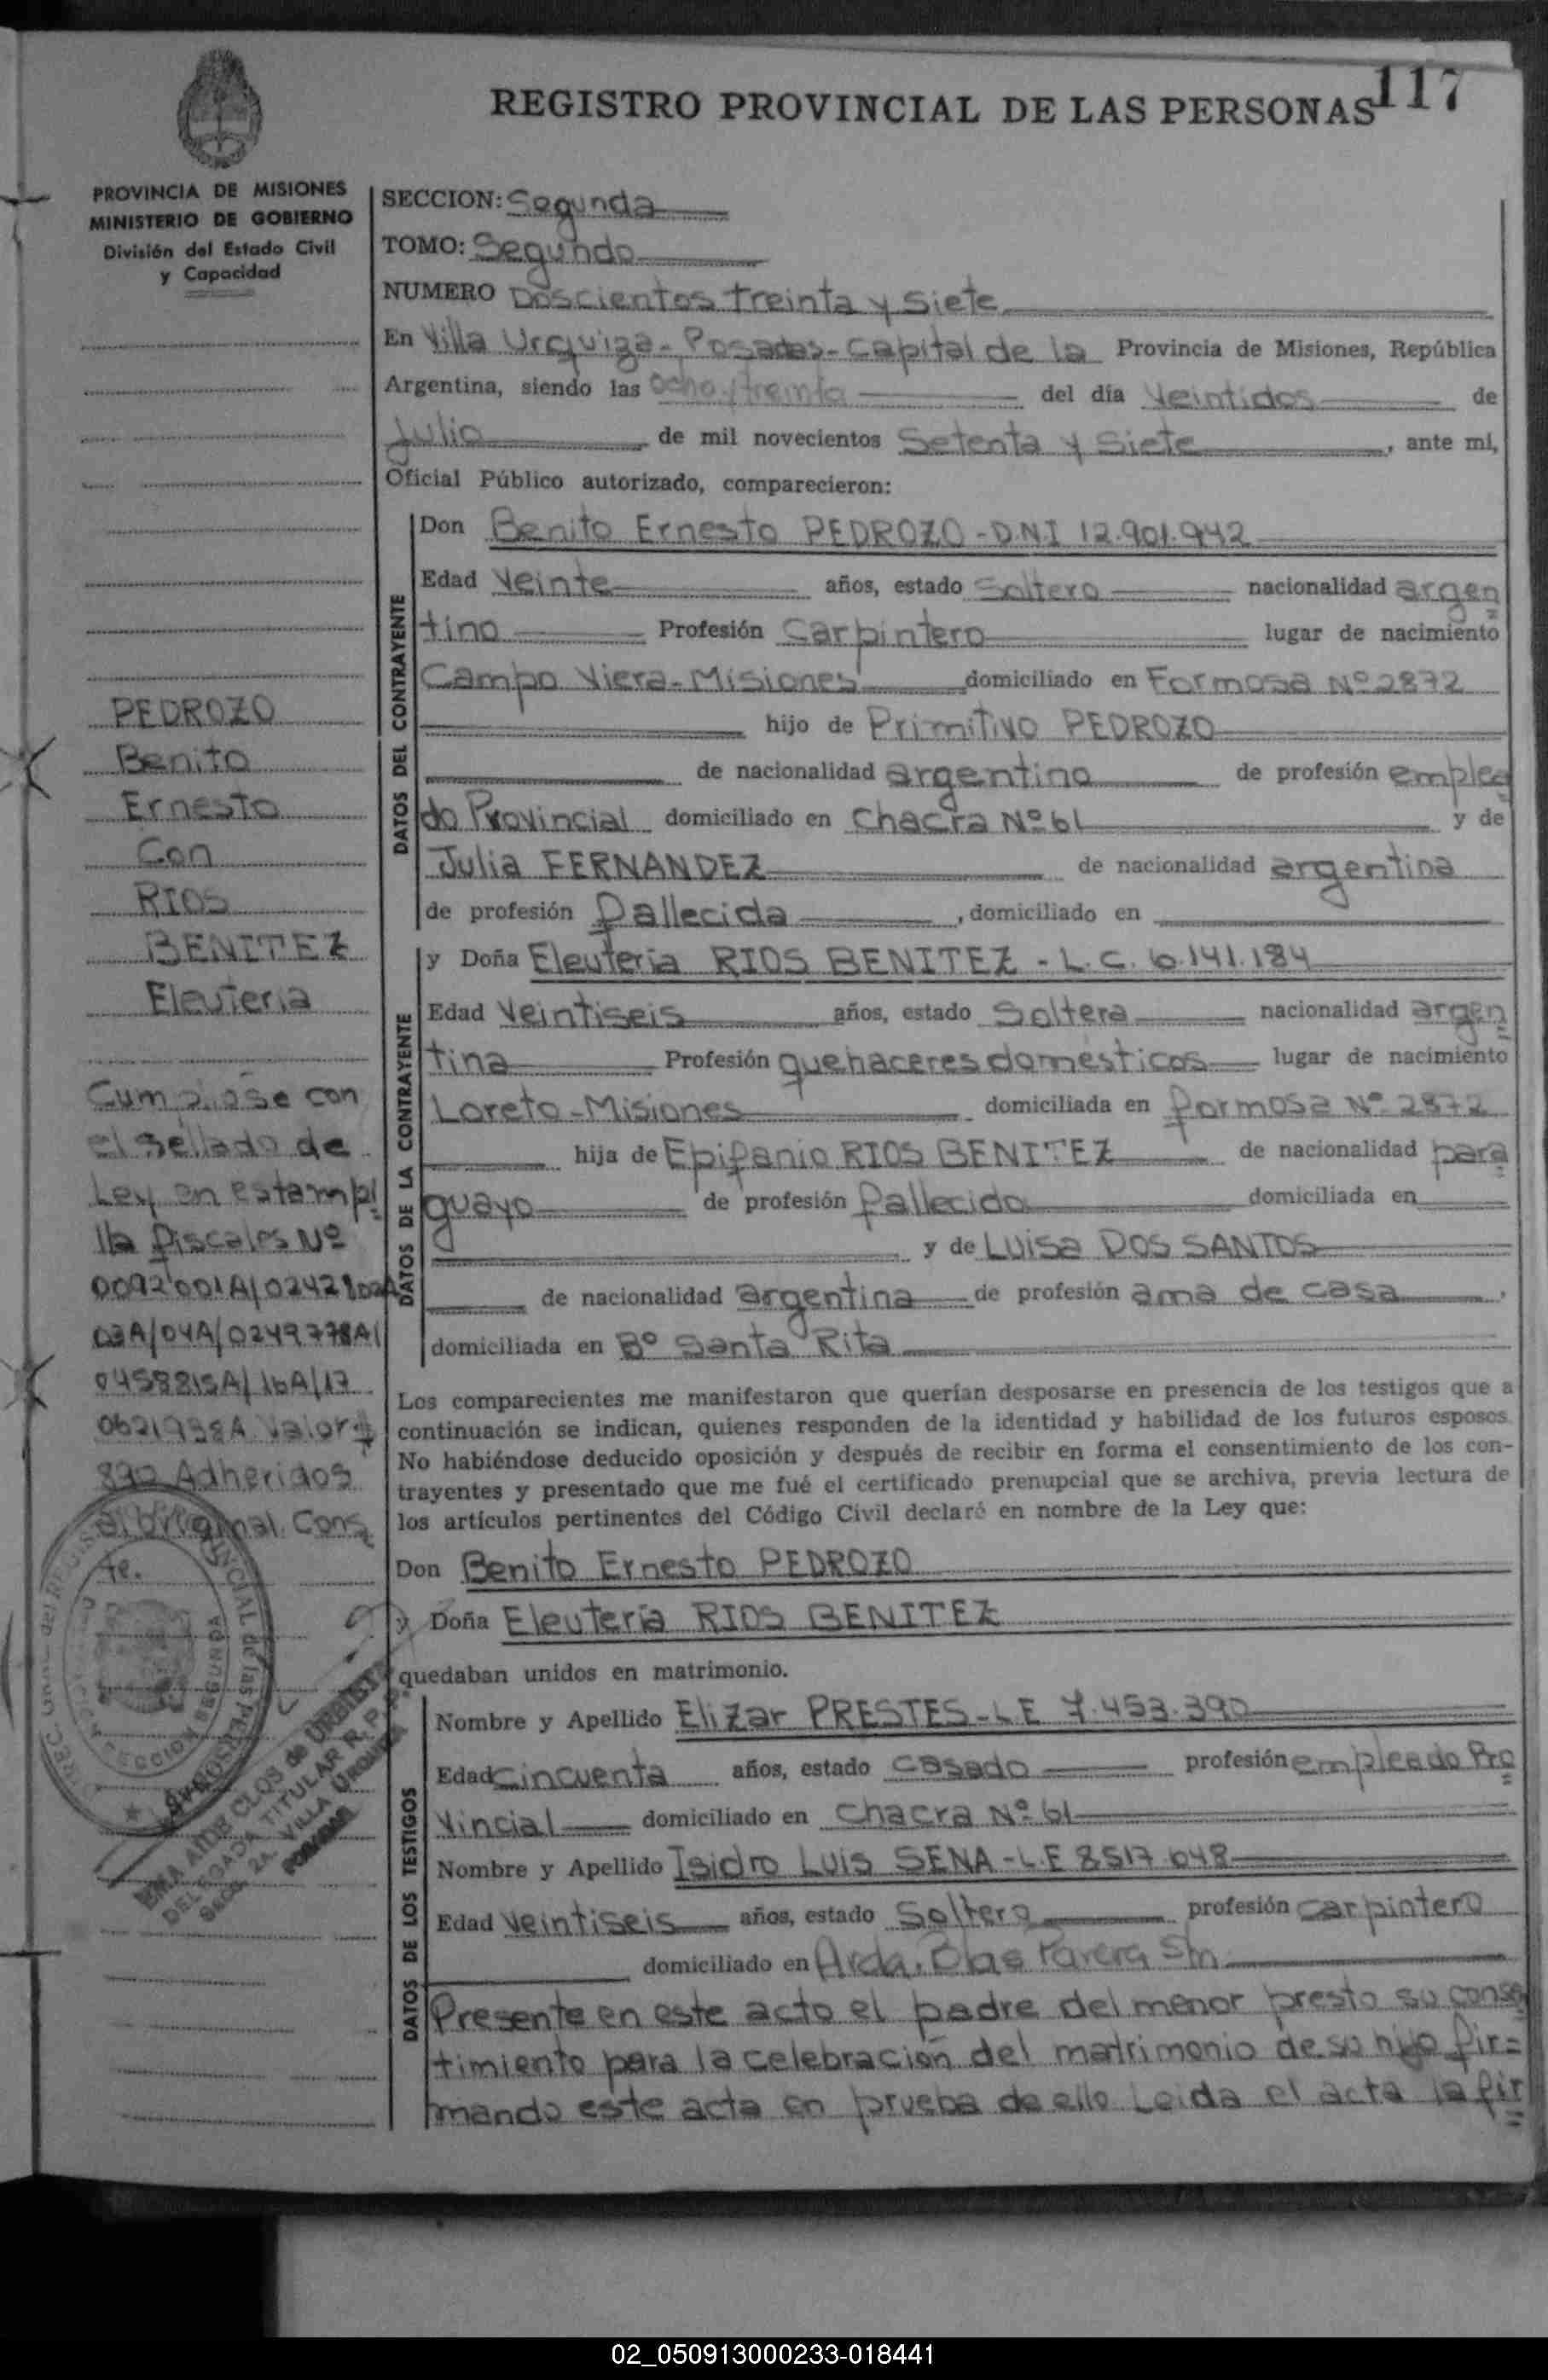 117
REGISTRO PROVINCIAL DE LAS PERSONAS
PROVINCIA DE MISIONES
MINISTERIO DE GOBIERNO
División del Estado Civil
y Capacidad
PEDROZO
Benito
Ernesto
Con
RIOS
BENITEZ
Eleuteria
Cumpliose con
el sellado de
Ley en estampi
lla fiscales Nº
0092001A/
03A/04A/0249778A/
0458815A/16A/17
0621938A Valor $
890 Adheridos
al original. Cons
te.
SECCION: Segunda
TOMO: Segundo
NUMERO Doscientos treinta y siete
En Villa Urquiza - Posadas - Capital de la Provincia de Misiones, República
Argentina, siendo las ocho y treinta del día Veintidos de
Julio de mil novecientos Setenta y Siete, ante mí,
Oficial Público autorizado, comparecieron:
DATOS DEL CONTRAYENTE
Don Benito Ernesto PEDROZO - D.N.I 12.901.942
Edad Veinte años, estado Soltero nacionalidad argen
tino Profesión Carpintero lugar de nacimiento
Campo Viera - Misiones domiciliado en Formosa Nº 2872
hijo de Primitivo PEDROZO
de nacionalidad argentino de profesión emplea
do Provincial domiciliado en Chacra Nº 61 y de
Julia FERNANDEZ de nacionalidad argentina
de profesión fallecida, domiciliado en
DATOS DE LA CONTRAYENTE
y Doña Eleuteria RIOS BENITEZ - L.C. 6.141.184
Edad Veintiseis años, estado Soltera nacionalidad argen
tina Profesión quehaceres domésticos lugar de nacimiento
Loreto - Misiones domiciliada en formosa Nº 2872
hija de Epifanio RIOS BENITEZ de nacionalidad para
guayo de profesión fallecido domiciliada en
y de Luisa DOS SANTOS
de nacionalidad argentina de profesión ama de casa,
domiciliada en Bº Santa Rita
Los comparecientes me manifestaron que querían desposarse en presencia de los testigos que a
continuación se indican, quienes responden de la identidad y habilidad de los futuros esposos.
No habiéndose deducido oposición y después de recibir en forma el consentimiento de los con-
trayentes y presentado que me fué el certificado prenupcial que se archiva, previa lectura de
los artículos pertinentes del Código Civil declaré en nombre de la Ley que:
Don Benito Ernesto PEDROZO
y Doña Eleuteria RIOS BENITEZ
quedaban unidos en matrimonio.
DATOS DE LOS TESTIGOS
Nombre y Apellido Elizar PRESTES - L.E 7.453.390
Edad Cincuenta años, estado casado profesión empleado Pro
Vincial domiciliado en Chacra Nº 61
Nombre y Apellido Isidro Luis SENA - L.E 8517.048
Edad Veintiseis años, estado Soltero profesión carpintero
domiciliado en Avda. Blas Parera S/n
Presente en este acto el padre del menor presto su conse
timiento para la celebración del matrimonio de su hijo fir=
mando este acta en prueba de ello Leida el acta la fir
EMA AIDE CLOS de URBIETA
DELEGADA TITULAR R. P. P.
Secc. 2a. VILLA URQUIZA
POSADAS
SECCION SEGUNDA
02_050913000233-018441